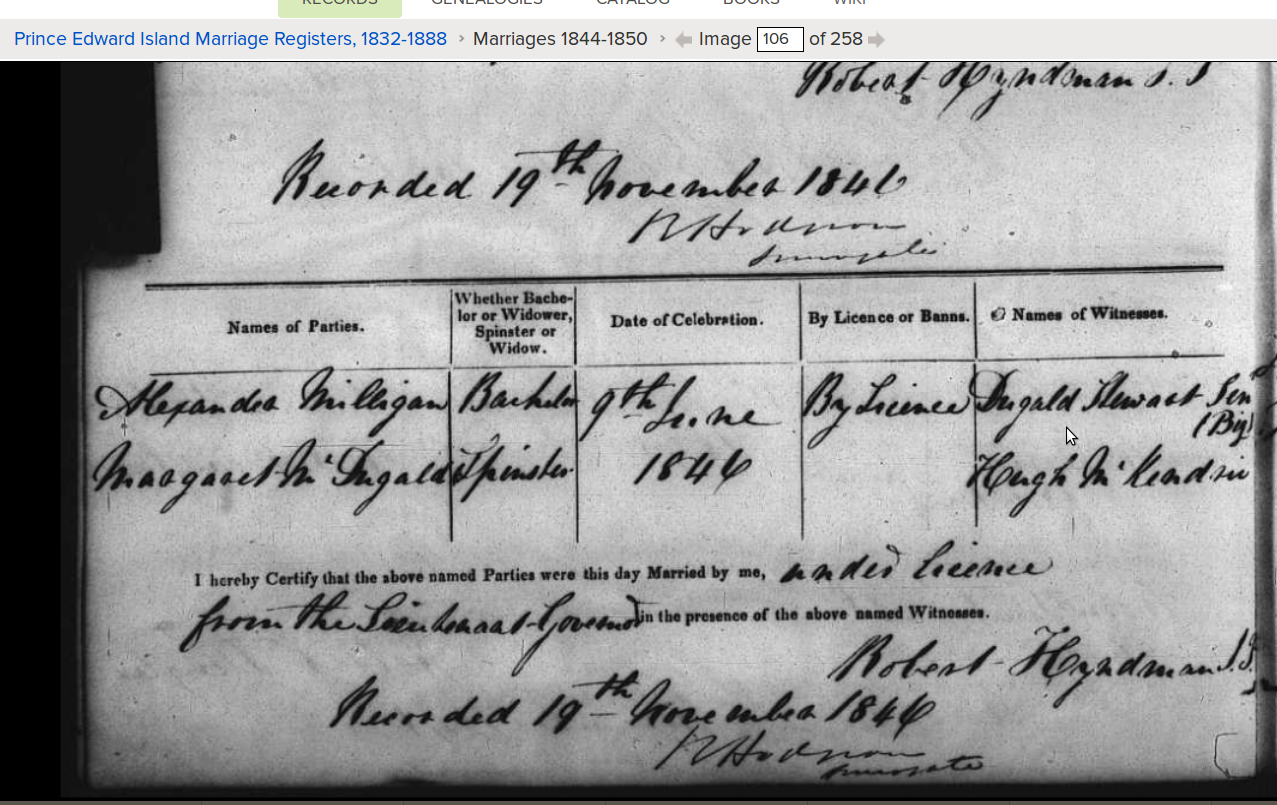 RECORDS GENEALOGIES CATALOG BOOKS WIKI
Prince Edward Island Marriage Registers, 1832-1888 › Marriages 1844-1850 › Image 106 of 258
Robert Hyndman J. P
Recorded 19th November 1846
R Hodgson
Surrogate
Names of Parties. Whether Bache-lor or Widower, Spinster or Widow. Date of Celebration. By Licence or Banns. Names of Witnesses.
Alexander Milligan Bachelor 9th June By Licence Dugald Stewart Sen
(Big)
Margaret McDugald Spinster 1846 Hugh McKendric
I hereby Certify that the above named Parties were this day Married by me, under licence
from the Lieutenant Governor in the presence of the above named Witnesses.
Robert Hyndman J.P.
Recorded 19th November 1846
R Hodgson
Surrogate